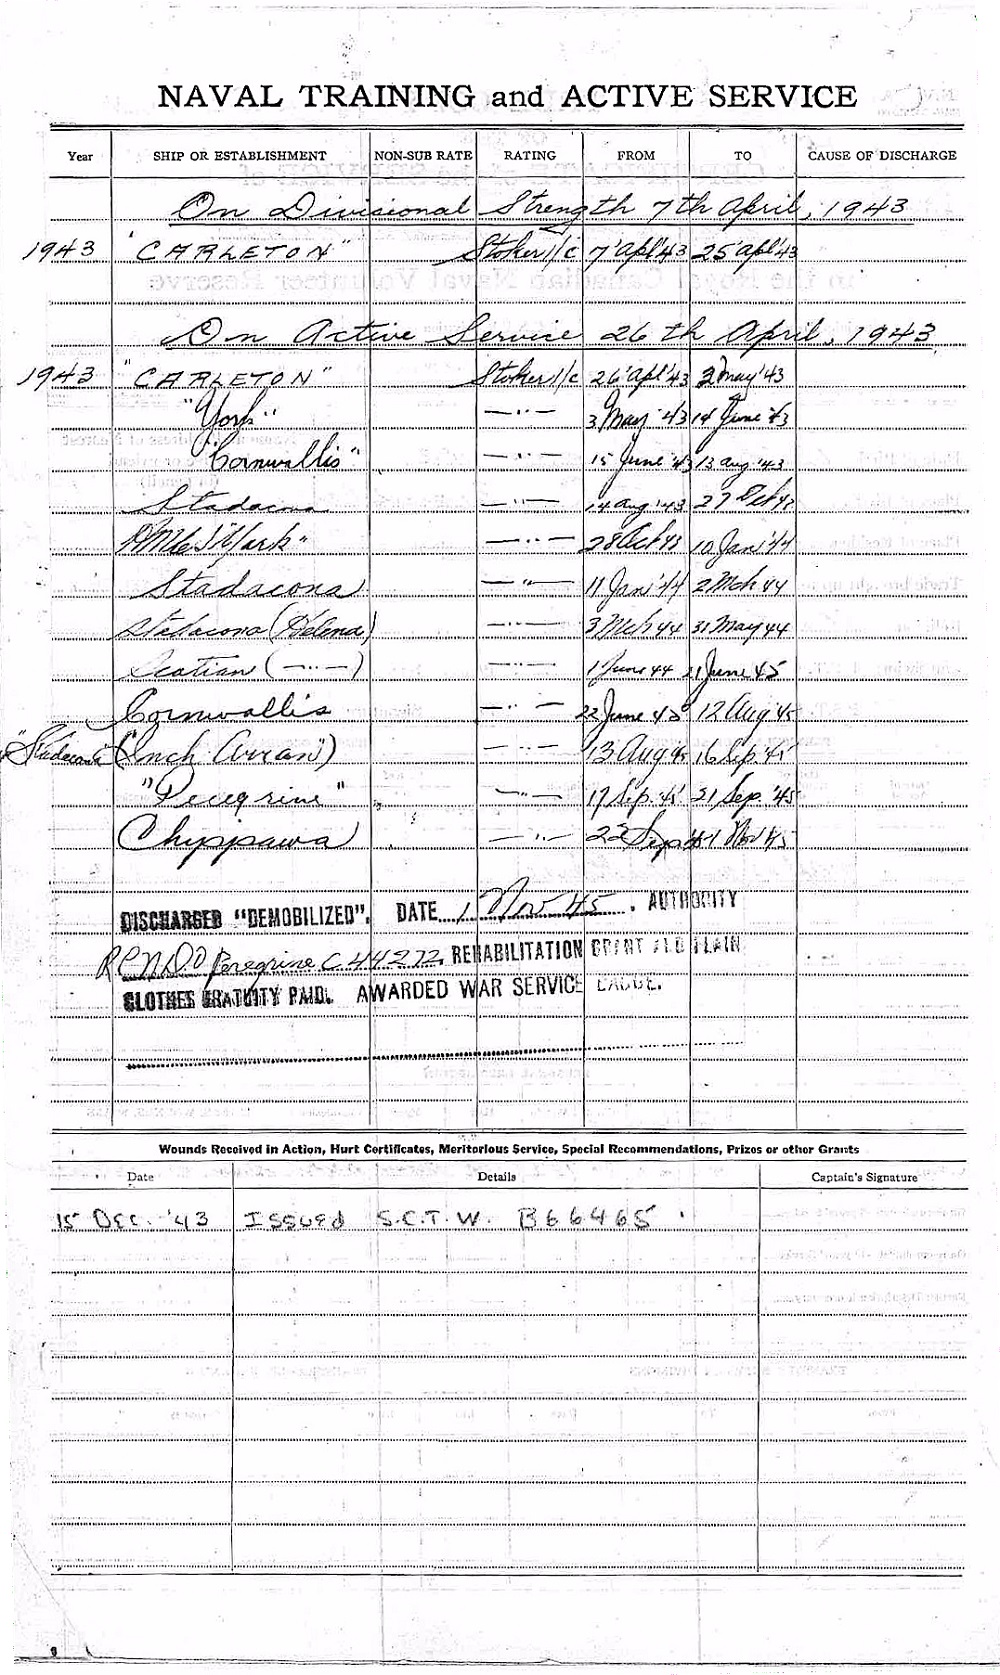 NAVAL TRAINING and ACTIVE SERVICE
Year SHIP OR ESTABLISHMENT NON-SUB RATE RATING FROM TO CAUSE OF DISCHARGE
On Divisional Strength 7th April, 1943
1943 "CARLETON" Stoker 1/c 7 Apl '43 25 Apl '43
On Active Service 26th April, 1943
1943 "CARLETON" Stoker 1/c 26 Apl '43 2 May '43
"York" —"— 3 May '43 14 June '43
"Cornwallis" —"— 15 June '43 13 Aug '43
Stadacona —"— 14 Aug '43 27 Oct 43
York" —"— 28 Oct 43 10 Jan '44
Stadacona —"— 11 Jan '44 2 Mch 44
Stadacona (Helena) —"— 3 Mch 44 31 May 44
Scotian (—"—) —"— 1 June 44 21 June 45
Cornwallis —"— 22 June 45 12 Aug 45
"Stadacona" (Inch Arran") —"— 13 Aug 45 16 Sep. 45
"Peregrine" —"— 17 Sep. 45 21 Sep. '45
Chippawa —"— 22 Sep 45 1 Nov 45
DISCHARGED "DEMOBILIZED". DATE 1 Nov 45. AUTHORITY
Peregrine C 44272. REHABILITATION GRANT AND PLAIN
CLOTHES GRATUITY PAID. AWARDED WAR SERVICE BADGE.
Wounds Received in Action, Hurt Certificates, Meritorious Service, Special Recommendations, Prizes or other Grants
Date Details Captain's Signature
15 Dec. '43 Issued S.C.T.W. B66465